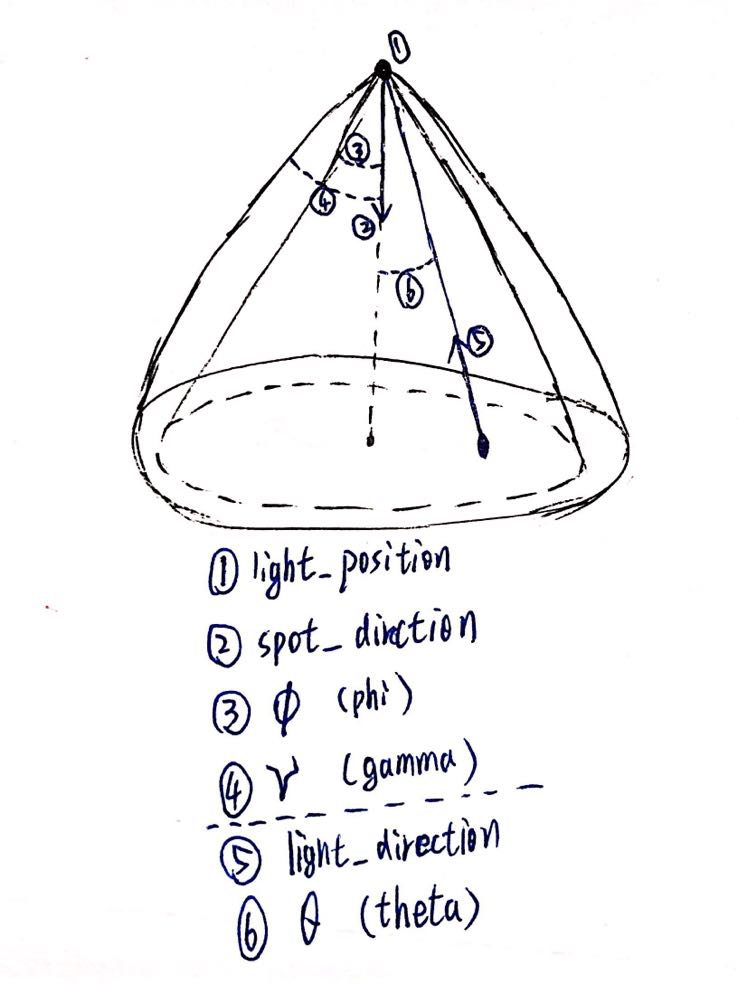 ①
③
④
②
⑥
⑤
① light_position
② spot_direction
③ φ (phi)
④ γ (gamma)
⑤ light_direction
⑥ θ (theta)